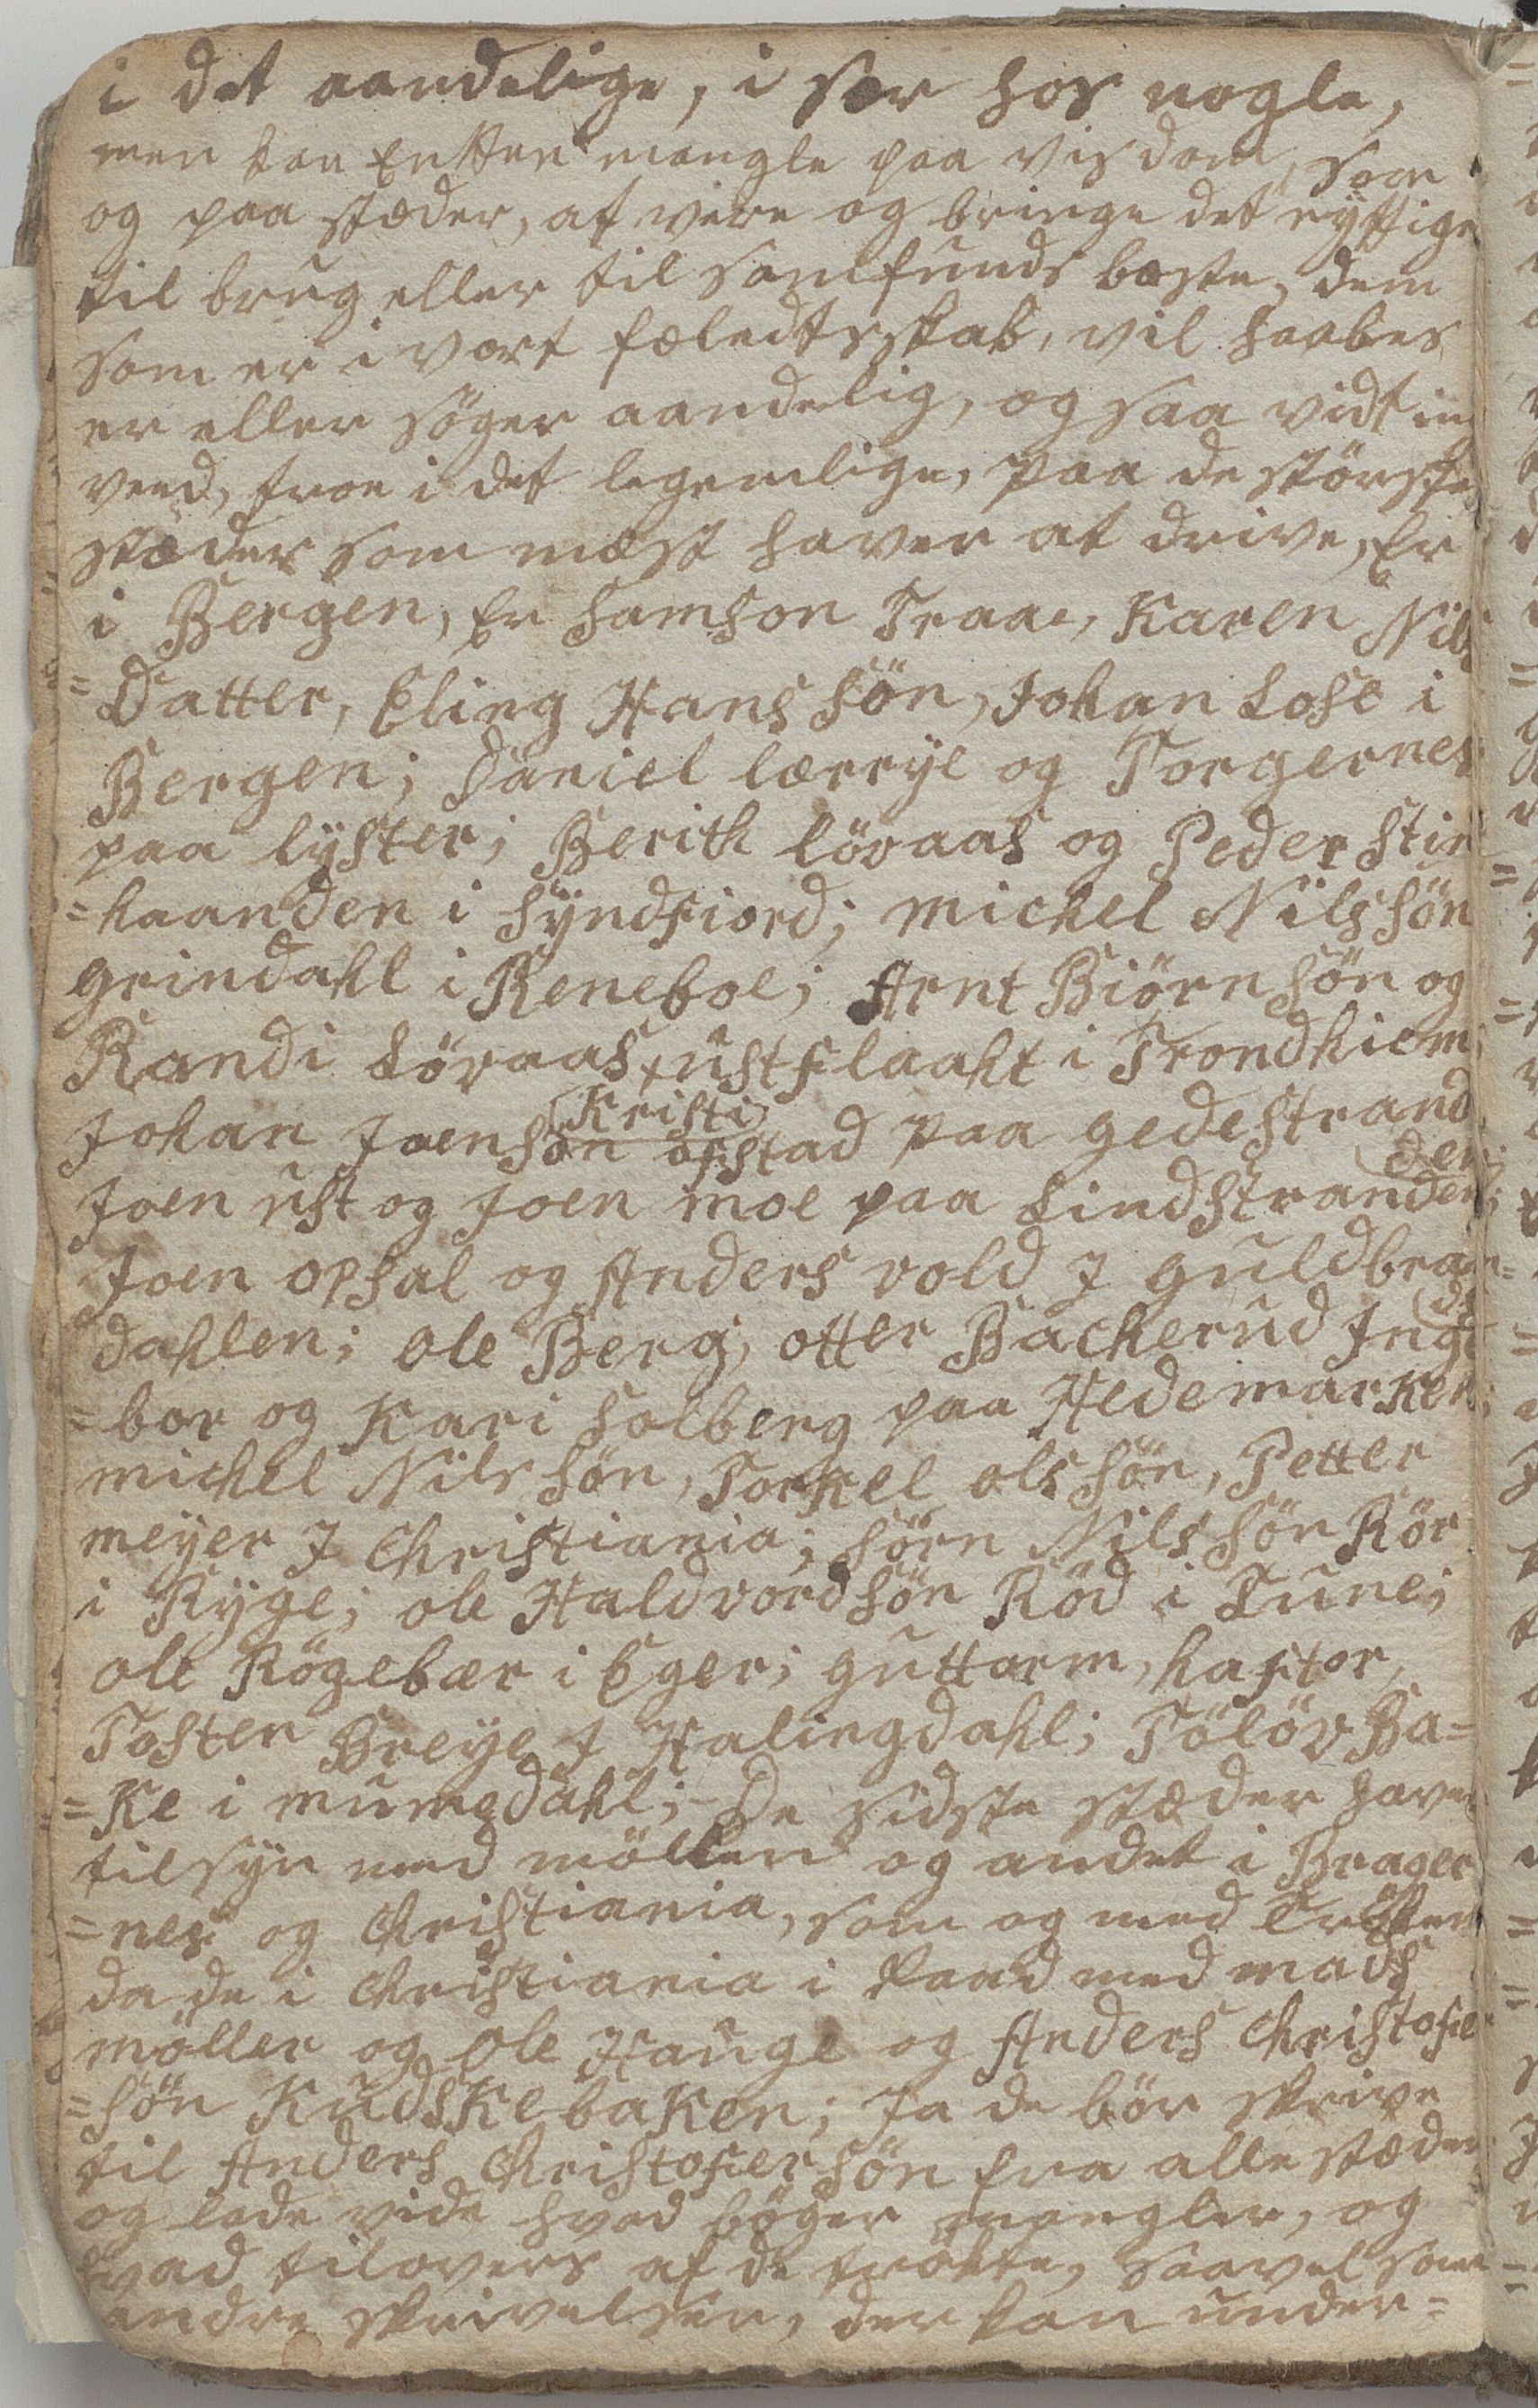 i det aandelige, i sær hos nogle,
men kan Entten mangle paa visdom, som
og paa stæder, at være og bringe det nyttige
til brug eller til samfunds bæste, dem
som er i vort sælskab, vil haabes
er eller söger aandelig, og saa vidt ieg
veed, troe i det legemlige, paa de störste
stæder som mæst haver at drive, Er
i Bergen, Er Samson Traae, Karen Nils
=Datter, Eling Hans Sön, Johan Lose i
Bergen; Daniel lærrye og Torgernes
paa lyster; Berith lövaas og Peder Stin
=haanden i Syndfiord; michel Nils Sön
grindahl i Reneboe; Arnt Biörn Sön og
Randi Lövaas, ustflaaht i Trondhiem;
Kristi
Johan Joensön ofstad paa gedestrand
den;
Joen ust og Joen moe paa Lindstranden;
Joen opsal og Anders vold J guldbran=
ds
dahlen; ole Berg, otter Backerud Inge
=bor og Kari Solberg paa Hedemarken;
michel Nils Sön, Torkel ols Sön, Petter
meyer J Christiania; Sörn Nils Sön Rör
i Ryge; ole Haldvord Sön Röd i Tune;
ole Rögebær i Eger; guttorm, haftor,
Tosten Breye J Halingdahl; Tölöv Ba=
=Ke i numedahl; De sidste stæder haver
tilsyn med möllen og andet i Brager
=nes og Christiania, som og med Trökken
da de i Christiania i Raad med mads
möller og ole Hauge og Anders Christofer
=Sön Kudskebaken; Ja de bör skrive
til Anders Christofer Sön fra alle stæder
og lade vide hvad böger mangler, og
hvad tilovers af de trökte, saavel som
andre skrivelser, der kan under=